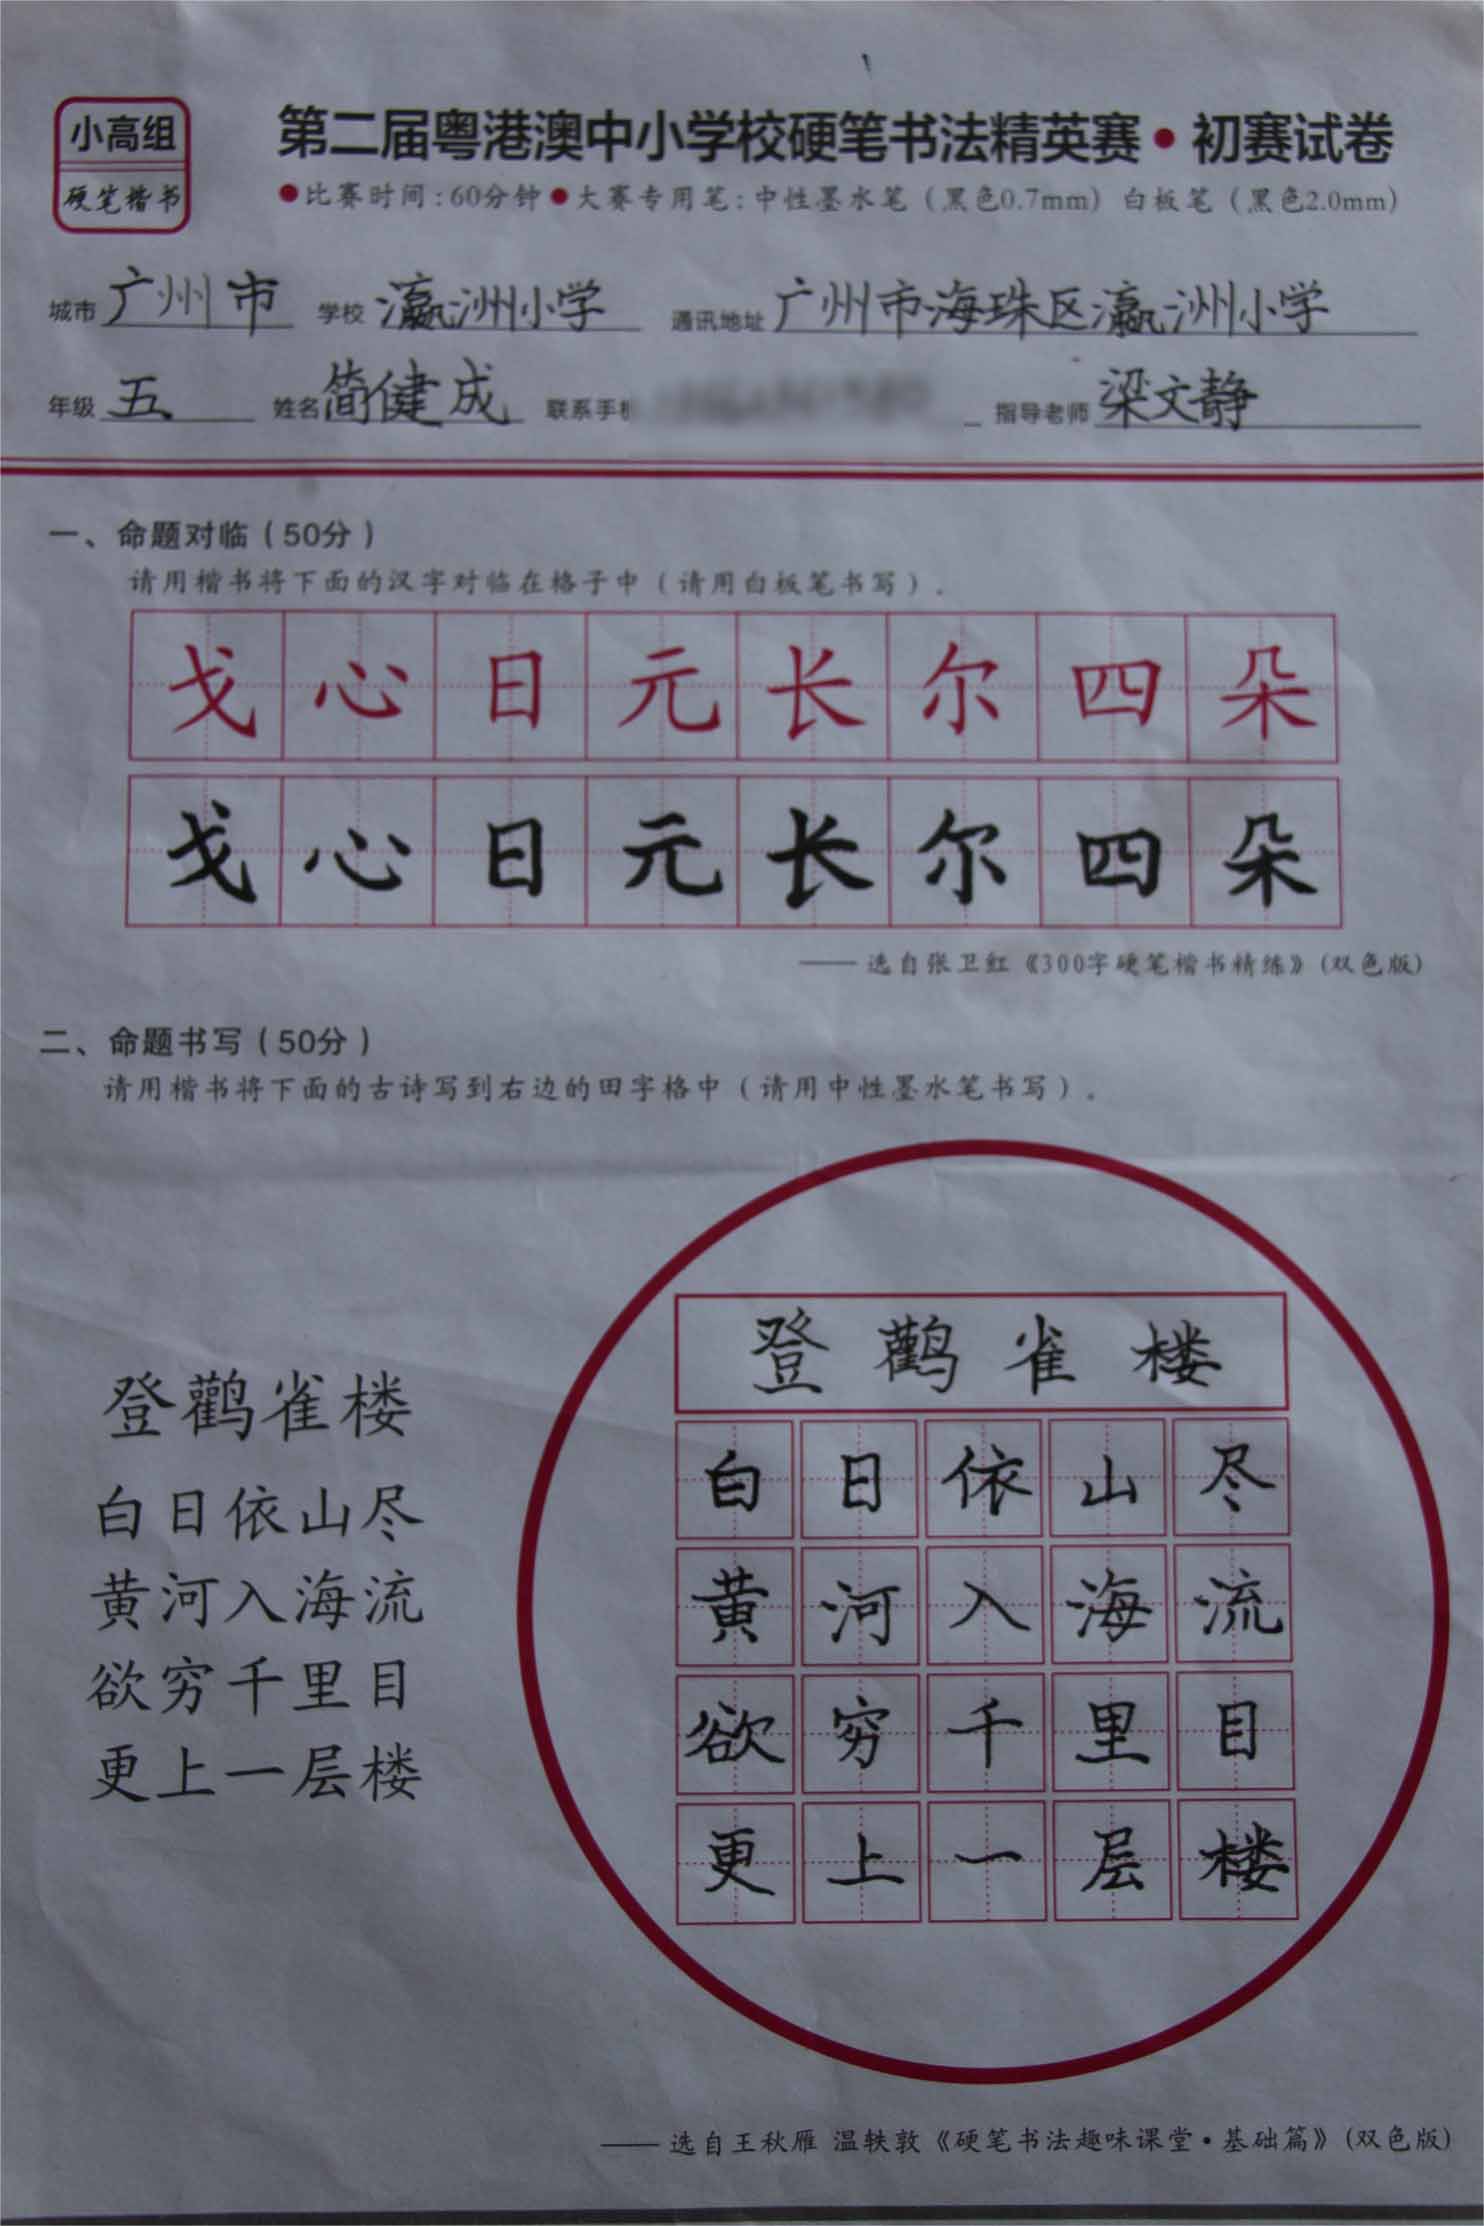 小高组
硬笔楷书
第二届粤港澳中小学校硬笔书法精英赛•初赛试卷
●比赛时间:60分钟●大赛专用笔:中性墨水笔(黑色0.7mm)白板笔(黑色2.0mm)
城市 广州市 学校 瀛洲小学 通讯地址 广州市海珠区瀛洲小学
年级 五 姓名 简健成 联系手机 指导老师 梁文静
一、命题对临(50分)
请用楷书将下面的汉字对临在格子中(请用白板笔书写).
戈心日元长尔四朵
戈心日元长尔四朵
——选自张卫红《300字硬笔楷书精练》(双色版)
二、命题书写(50分)
请用楷书将下面的古诗写到右边的田字格中(请用中性墨水笔书写).
登鹳雀楼
白日依山尽
黄河入海流
欲穷千里目
更上一层楼
登鹳雀楼
白日依山尽
黄河入海流
欲穷千里目
更上一层楼
——选自王秋雁 温轶敦《硬笔书法趣味课堂·基础篇》(双色版)